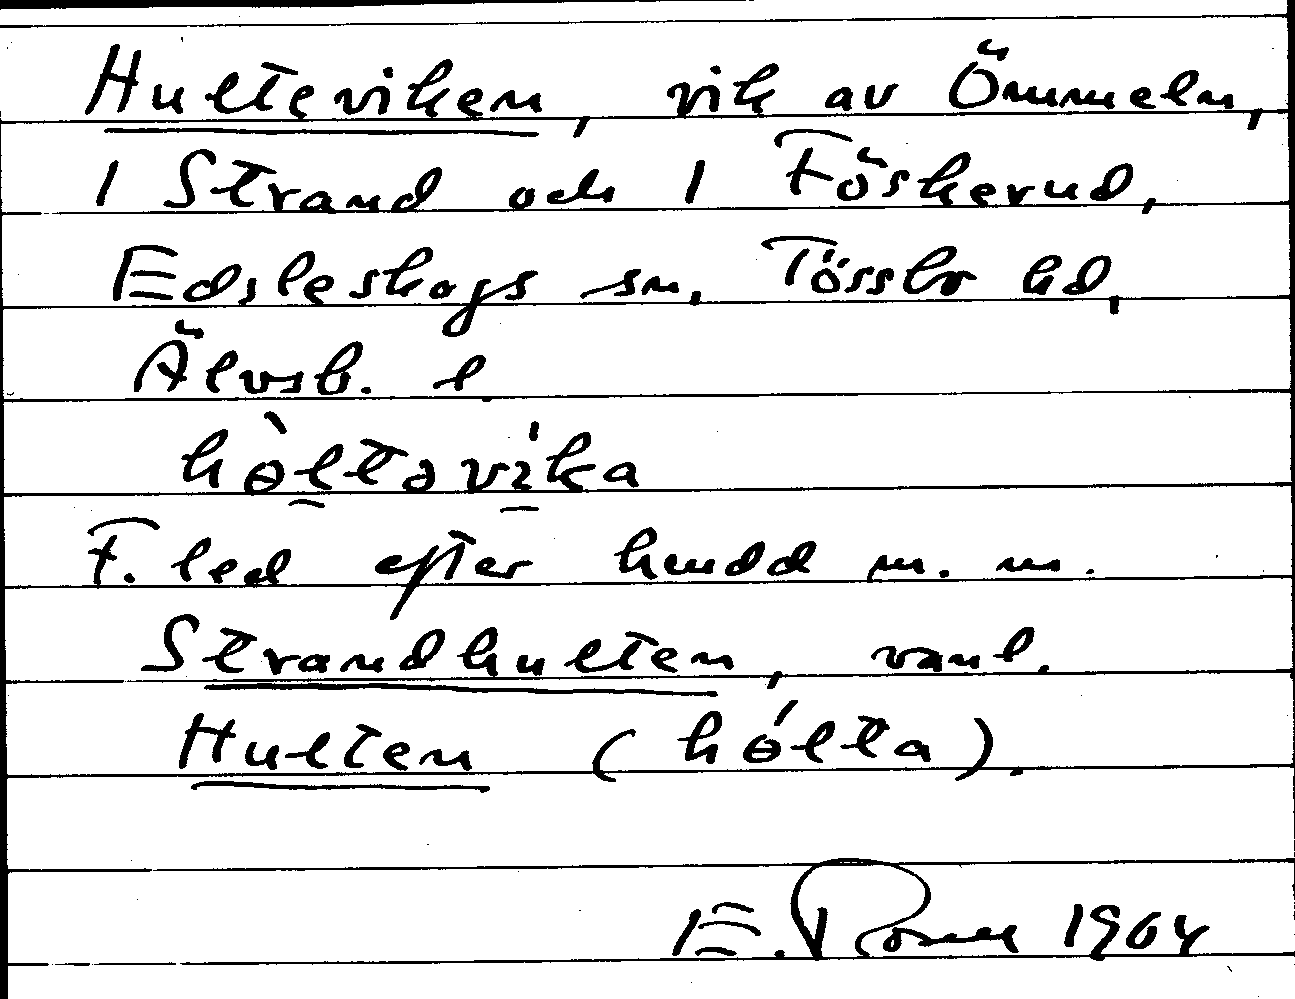 Hulteviken, vik av Ömmeln,
1 Strand och 1 Föskerud,
Edsleskogs sn. Tössbo hd,
Älvsb. l.
hòltavíka
F. led efter hmdd m. m.
Strandhulten, vanl.
Hulten (hólta).
E. 1964